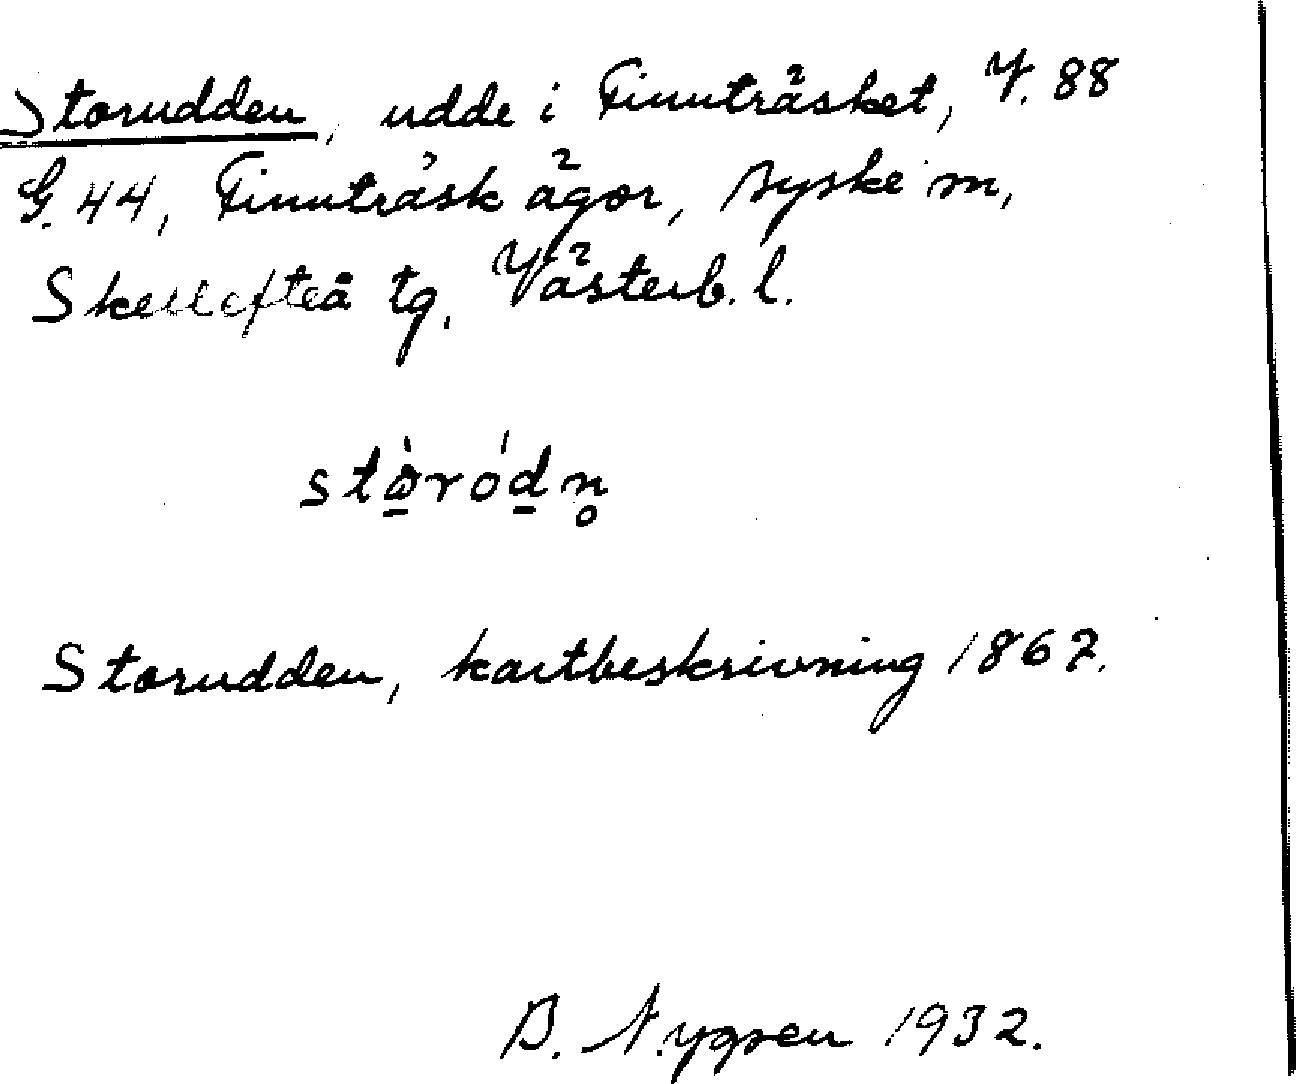 Storudden, udde i Finnträsket, V. 88
G. 44, Finnträsk ägor, Byske sn,
Skellefteå tg. Västerb. l.
stòródn̥
Storudden, kartbeskrivning 1867.
B. Nygren 1932.